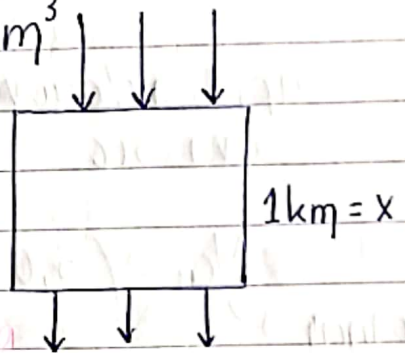 m³
1km = x